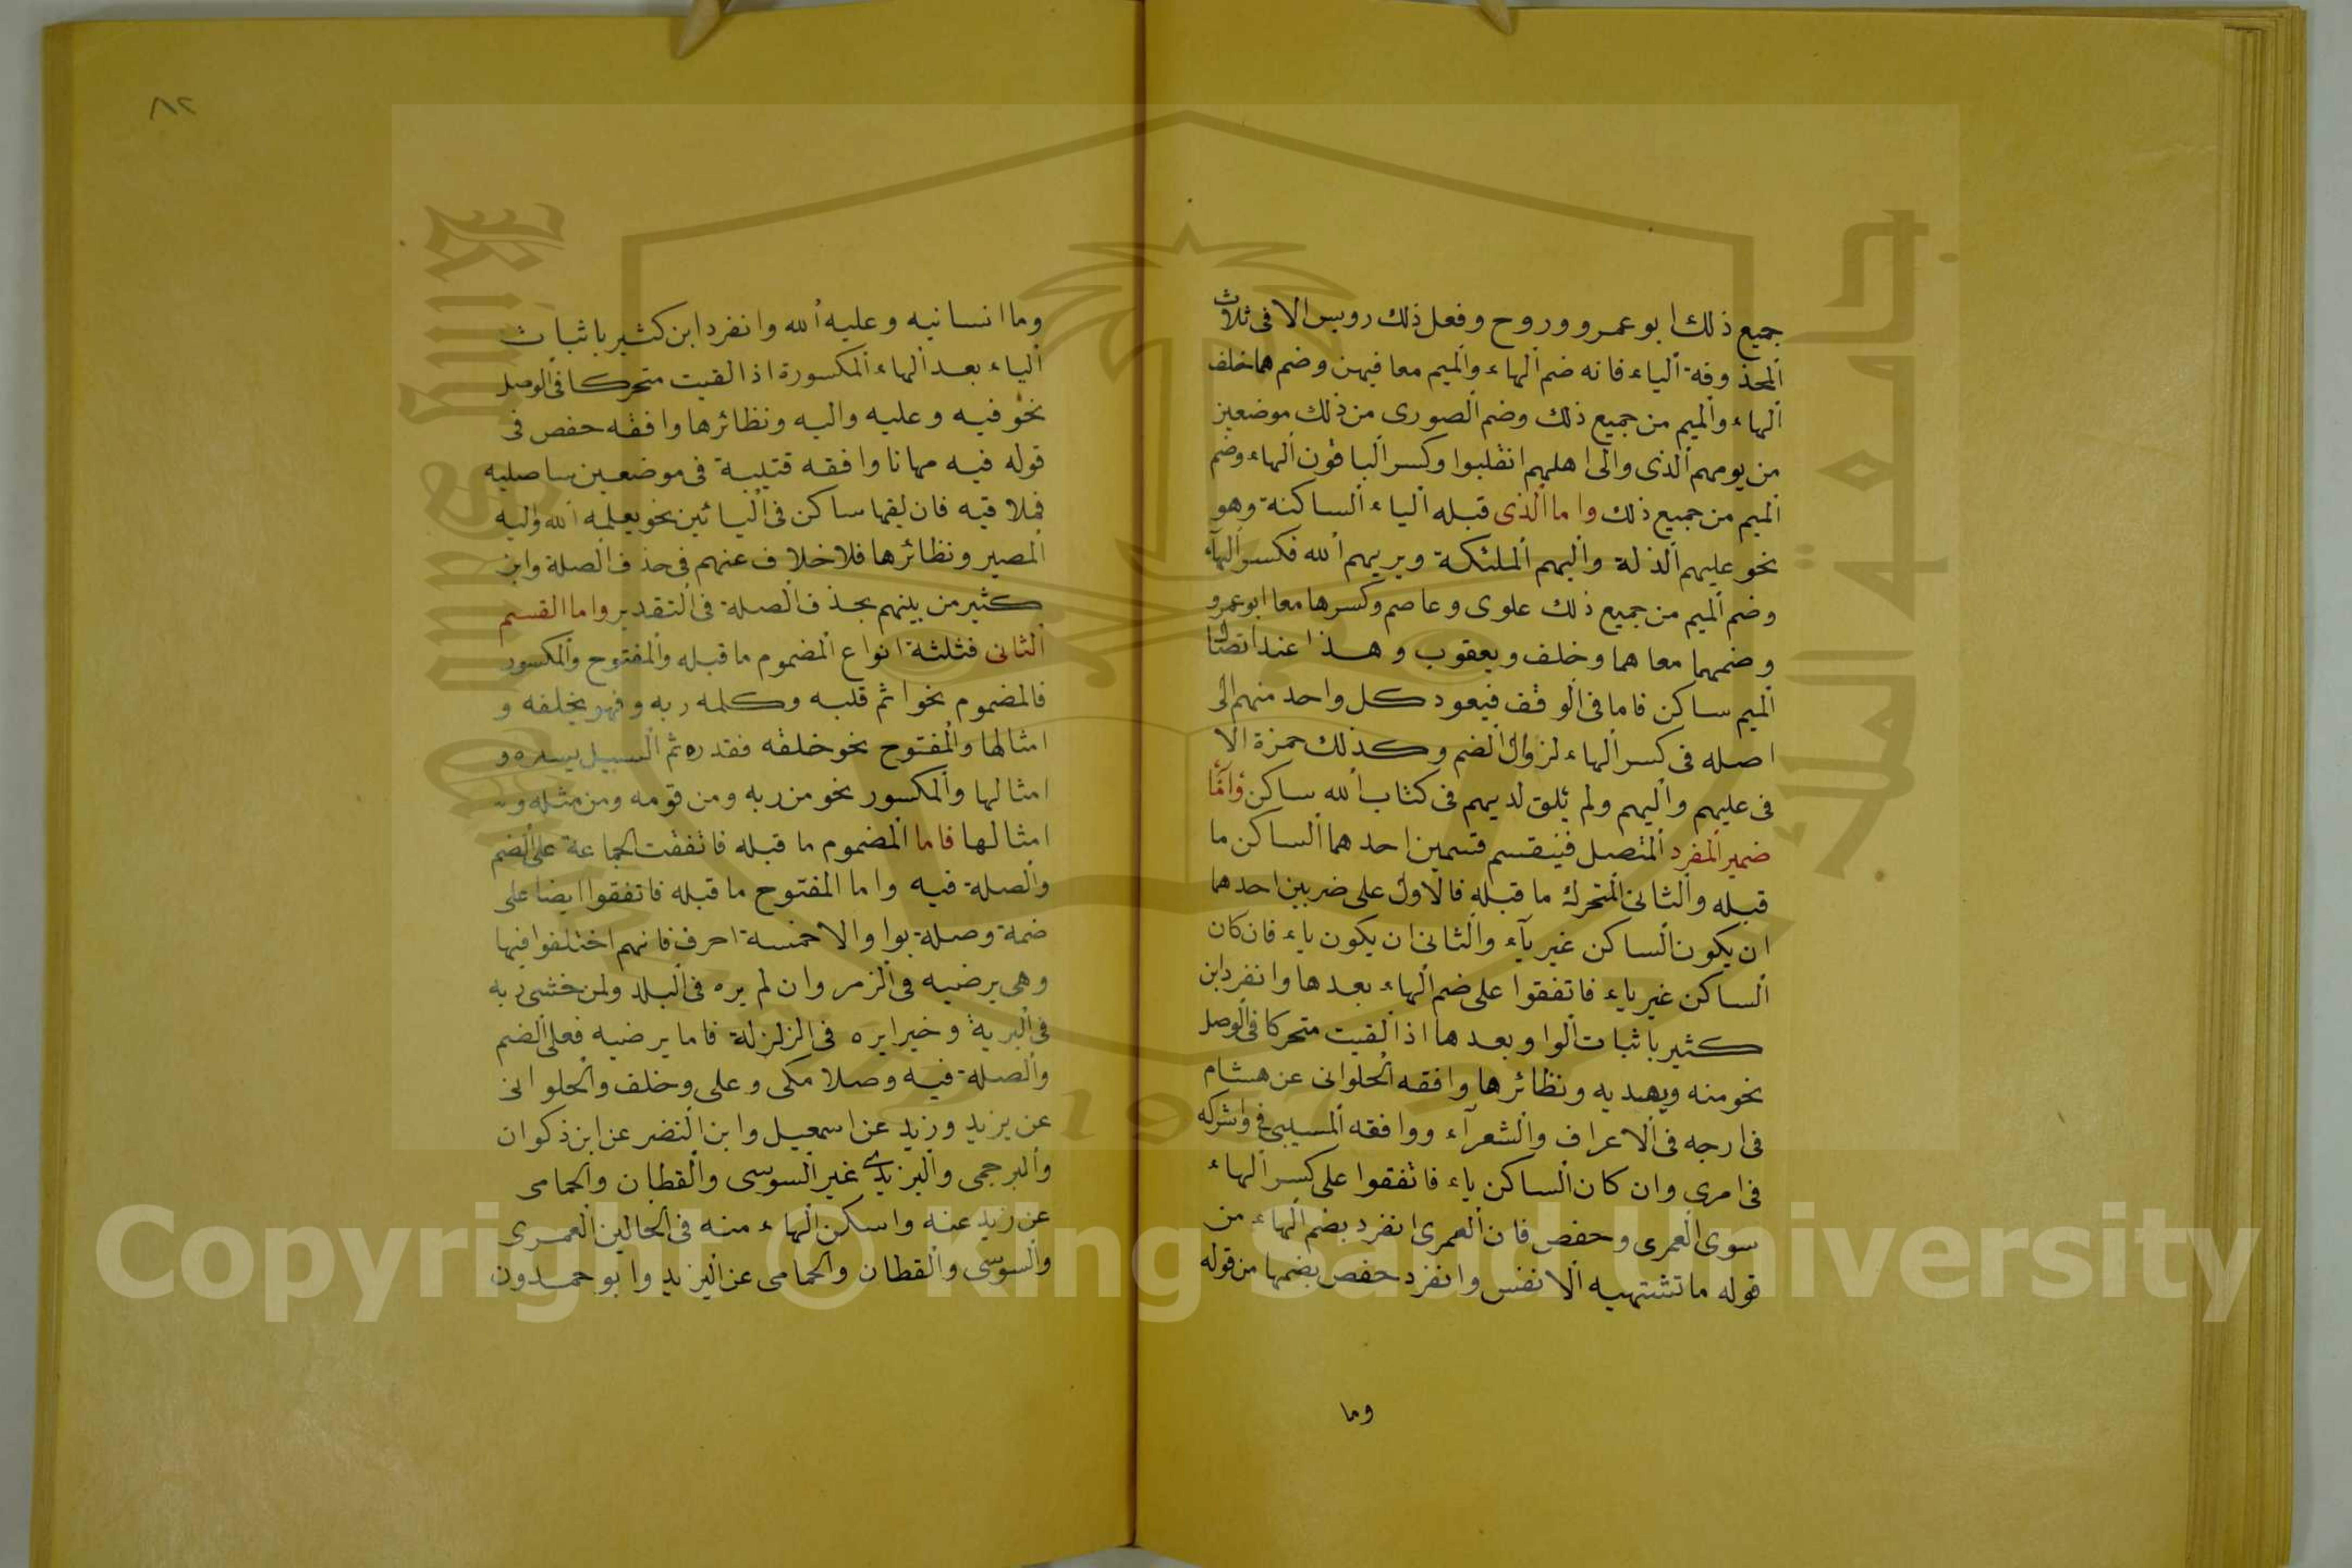 جميع ذلك ابو عمرو وروح وفعل ذلك رويس الا فى ثلاث
المحذوفة الياء فانه ضم الهاء والميم معا فيهن وضمهما خلف
الهاء والميم من جميع ذلك وضم الصورى من ذلك موضعين
من يومهم الذى والى اهلهم انقلبوا وكسر الباقون الهاء وضم
الميم من جميع ذلك واما الذى قبله الياء الساكنة وهو
نحو عليهم الذلة واليهم الملئكة ويريهم الله فكسر الهآء
وضم الميم من جميع ذلك علوى وعاصم وكسرها معا ابو عمرو
وضمهما معا هما وخلف ويعقوب وهذا عند اتصال
الميم ساكن فاما فى الوقف فيعود كل واحد منهم الى
اصله فى كسر الهاء لزوال الضم وكذلك حمزة الا
فى عليهم واليهم ولم يلق لديهم فى كتاب الله ساكن وامّا
ضمير المفرد المتصل فينقسم قسمين احدهما الساكن ما
قبله والثانى المتحرك ما قبله فالاول على ضربين احدهما
ان يكون الساكن غير يآء والثانى ان يكون ياء فان كان
الساكن غير ياء فاتفقوا على ضم الهاء بعدها وانفرد ابن
كثير باثبات الواو بعدها اذا لقيت متحركا فى الوصل
نحو منه ويهديه ونظائرها وافقه الحلوانى عن هشام
فى ارجه فى الاعراف والشعرآء ووافقه المسيبى فى واشركه
فى امرى وان كان الساكن ياء فاتفقوا على كسر الهاء
سوى العمرى وحفص فان العمرى انفرد بضم الهاء من
قوله ما تشتهيه الانفس وانفرد حفص بضمها من قوله
وما
٨٢
وما انسانيه وعليه الله وانفرد ابن كثير باثبات
الياء بعد الهاء المكسورة اذا لقيت متحركا فى الوصل
نحو فيه وعليه واليه ونظائرها وافقه حفص فى
قوله فيه مهانا وافقه قتيبة فى موضعين ساصليه
فملاقيه فان لقيها ساكن فى اليائين نحو يعلمه الله واليه
المصير ونظائرها فلا خلاف عنهم فى حذف الصلة وابن
كثير من بينهم بحذف الصلة فى التقدير واما القسم
الثانى فثلثة انواع المضموم ما قبله والمفتوح والمكسور
فالمضموم نحو اثم قلبه وكلمه ربه وفهو يخلفه و
امثالها والمفتوح نحو خلقه فقدره ثم السبيل يسره و
امثالها والمكسور نحو من ربه ومن قومه ومن مثله و
امثالها فاما المضموم ما قبله فاتفقت الجماعة على الضم
والصلة فيه واما المفتوح ما قبله فاتفقوا ايضا على
ضمة وصلة بواو الا خمسة احرف فانهم اختلفوا فيها
وهى يرضيه فى الزمر وان لم يره فى البلد ولمن خشى ربه
فى البرية وخيرا يره فى الزلزلة فاما يرضيه فعلى الضم
والصلة فيه وصلا مكى وعلى وخلف والحلوانى
عن يزيد وزيد عن اسمعيل وابن النضر عن ابن ذكوان
والبرجمى واليزيدى غير السوسى والقطان والحمامى
عن زيد عنه واسكن الهاء منه فى الحالين العمرى
والسوسى والقطان والحمامى عن اليزيد وابو حمدون
Copyright © King Saud University